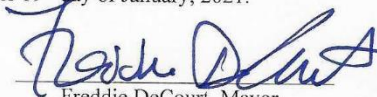 day of January, 2021.
Freddie DeCourt
Freddie DeCourt, Mayor